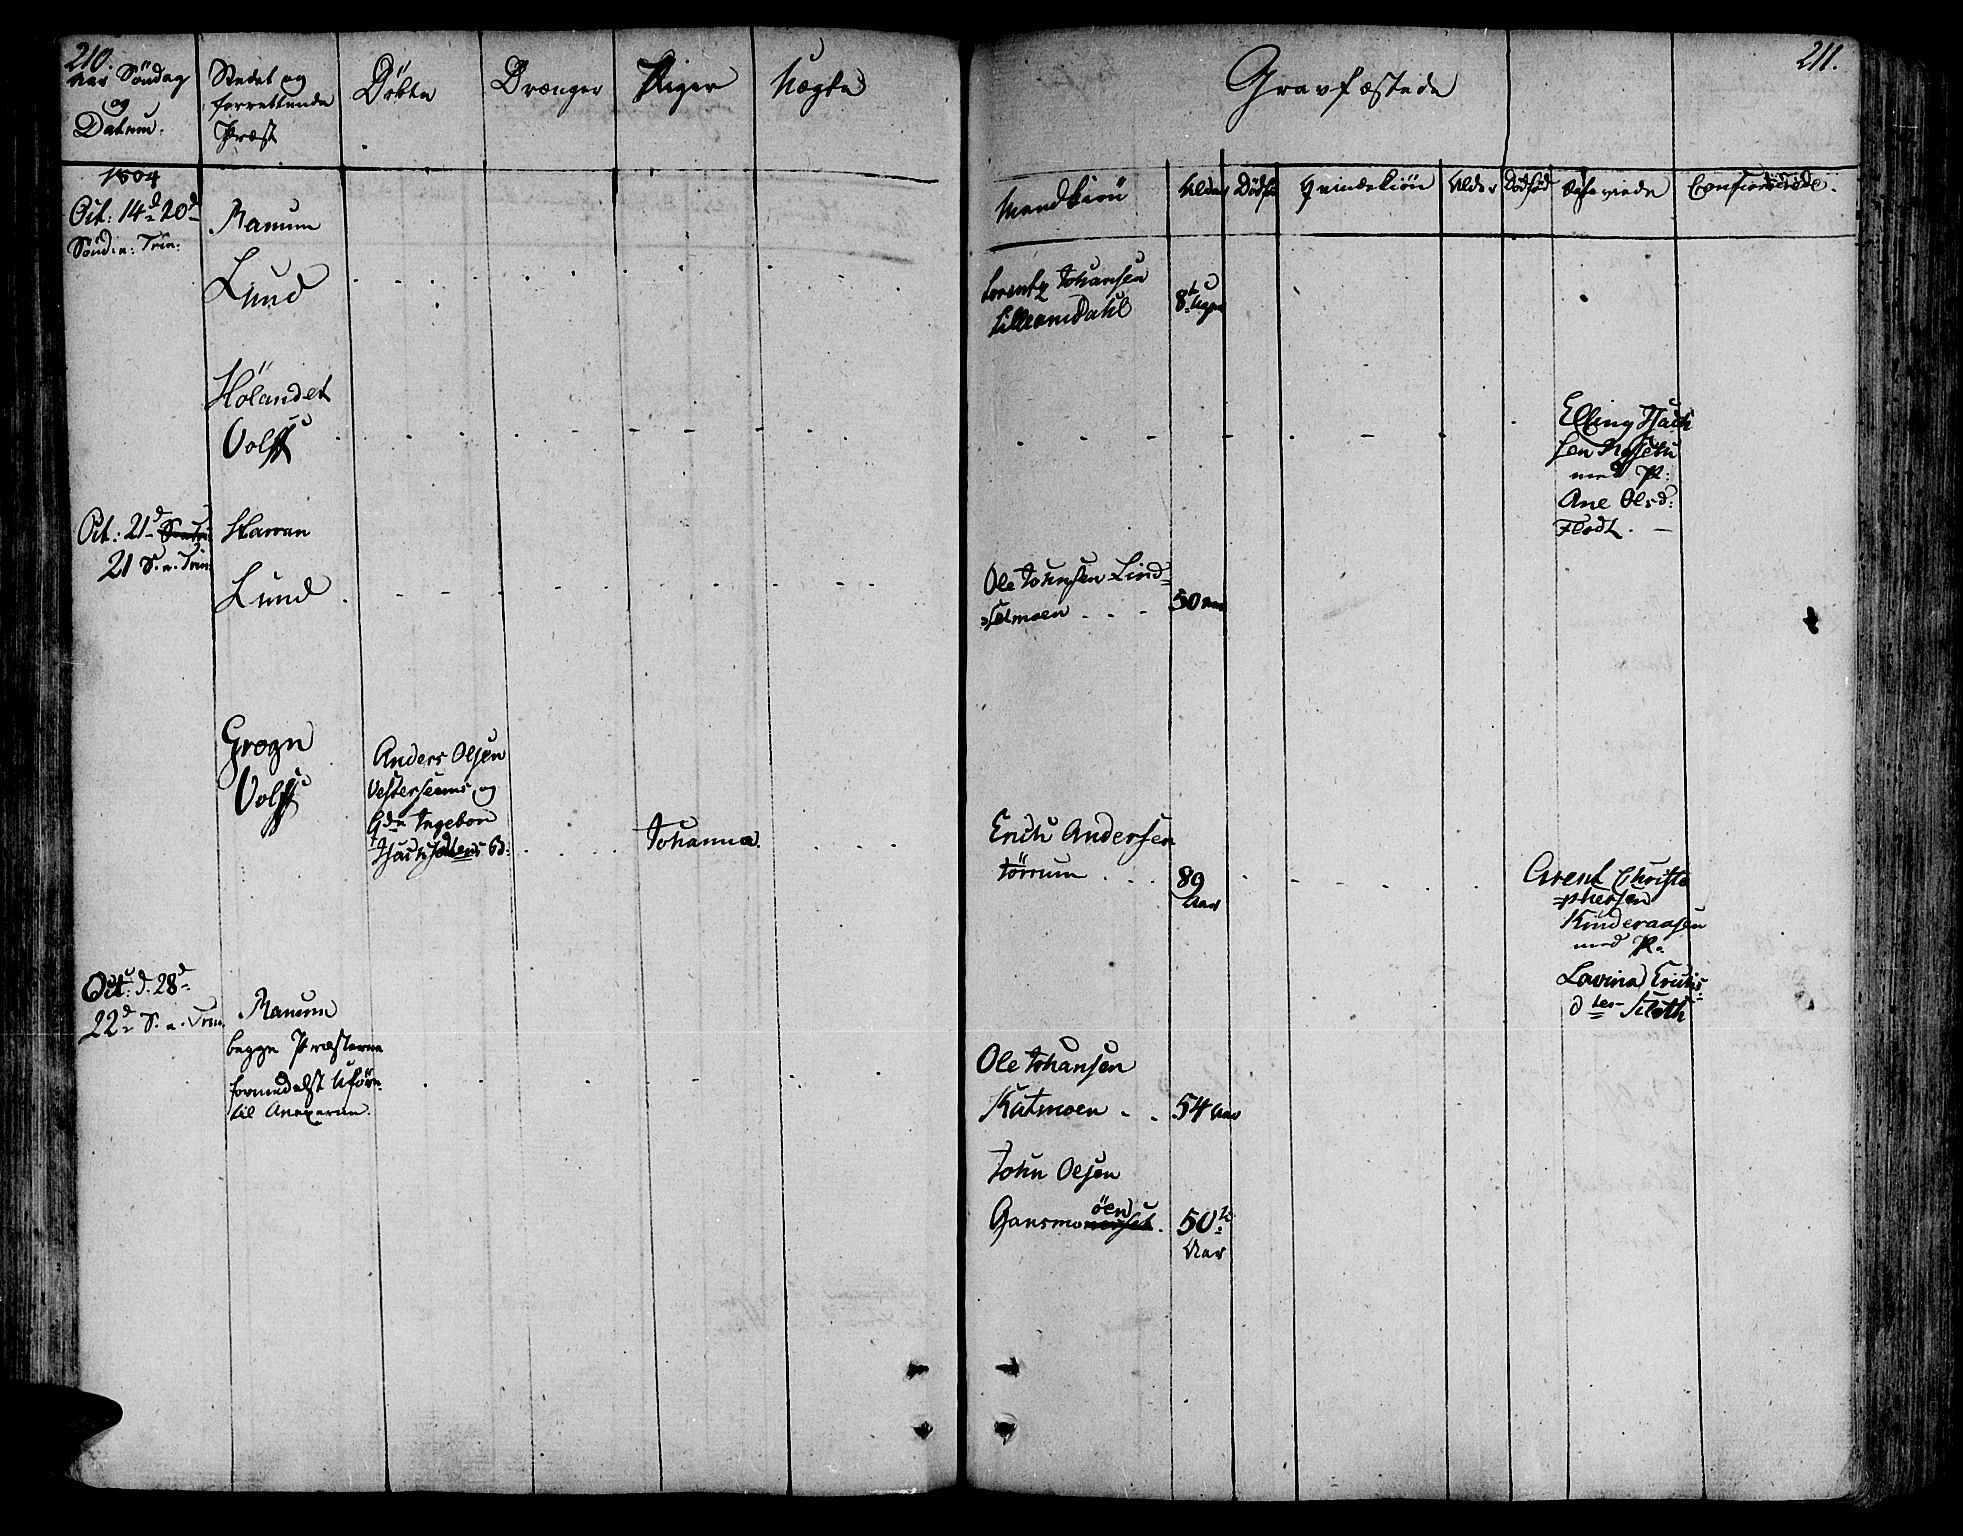 210.
Aar Söndag
og
Datum.
Stedet og
forrettende
Præst
Döbte
Drænger
Piger
Uægte
1804
Oct: 14d 20d
Sönd. a. Trin:
Ranum
Lund
Hölandet
Volff
Oct: 21d
21 S. a. Trin:
Harran
Lund
Grogn
Volff
Anders Olsen
og
Qde Ingebor
Johanna
Oct: d. 28d
22d S. a. Trin.
Ranum
begge Præsterne
formedelst Uföre
til Anexerne.
211.
Gravfæstede
Mandkiön
Alder
Dödfö
Qvindekiön
Alder
Dödföd
Copulerede
Confirmerede.
Lorentz Johansen
Lilleamdahl
8t Uger
Elling
med P:
Ane Olsd:
Flodt.
Ole Johnsen Lind=
=setmoen
50 aar
Erich Andersen
Törrum
89
Aar
Arent Christo
=phersen
Kinderaasen
med P.
Lavina Erichs
dter
Ole Johansen
Katmoen
54 Aar
John Olsen
Gansmoöen
50te
Aar